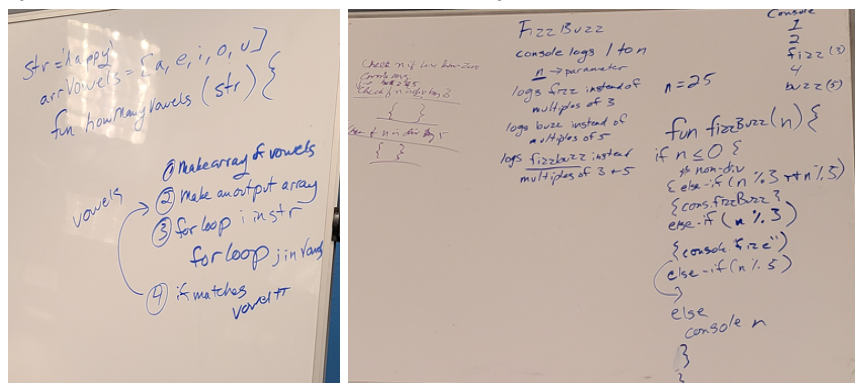 str='happy'
arrVowels = [a, e, i, o, u]
fun howManyVowels (str) {
① Make array of vowels
vowels
② Make an output array
③ for loop i in str
for loop j in
④ if matches
vowel++
Check n if
Check if n is div by 3
{ }
if n is div by 5
{ }
FizzBuzz
console logs 1 to n
n → parameter
logs fizz instead of
multiples of 3
logs buzz instead of
multiples of 5
logs fizzbuzz instead
multiples of 3 + 5
Console
1
2
fizz (3)
4
buzz (5)
n = 25
fun fizzBuzz (n) {
if n ≤ 0 {
non-div
{ else-if (n % 3 n % 5)
{ cons. fizzBuzz }
else-if (n % 3)
{ console "fizz")
else-if (n % 5)
else
console n
}
}